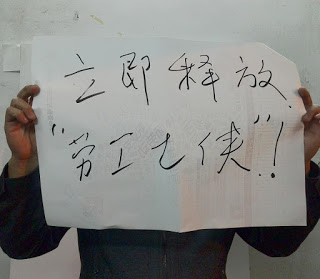 立即释放
“劳工七侠”!